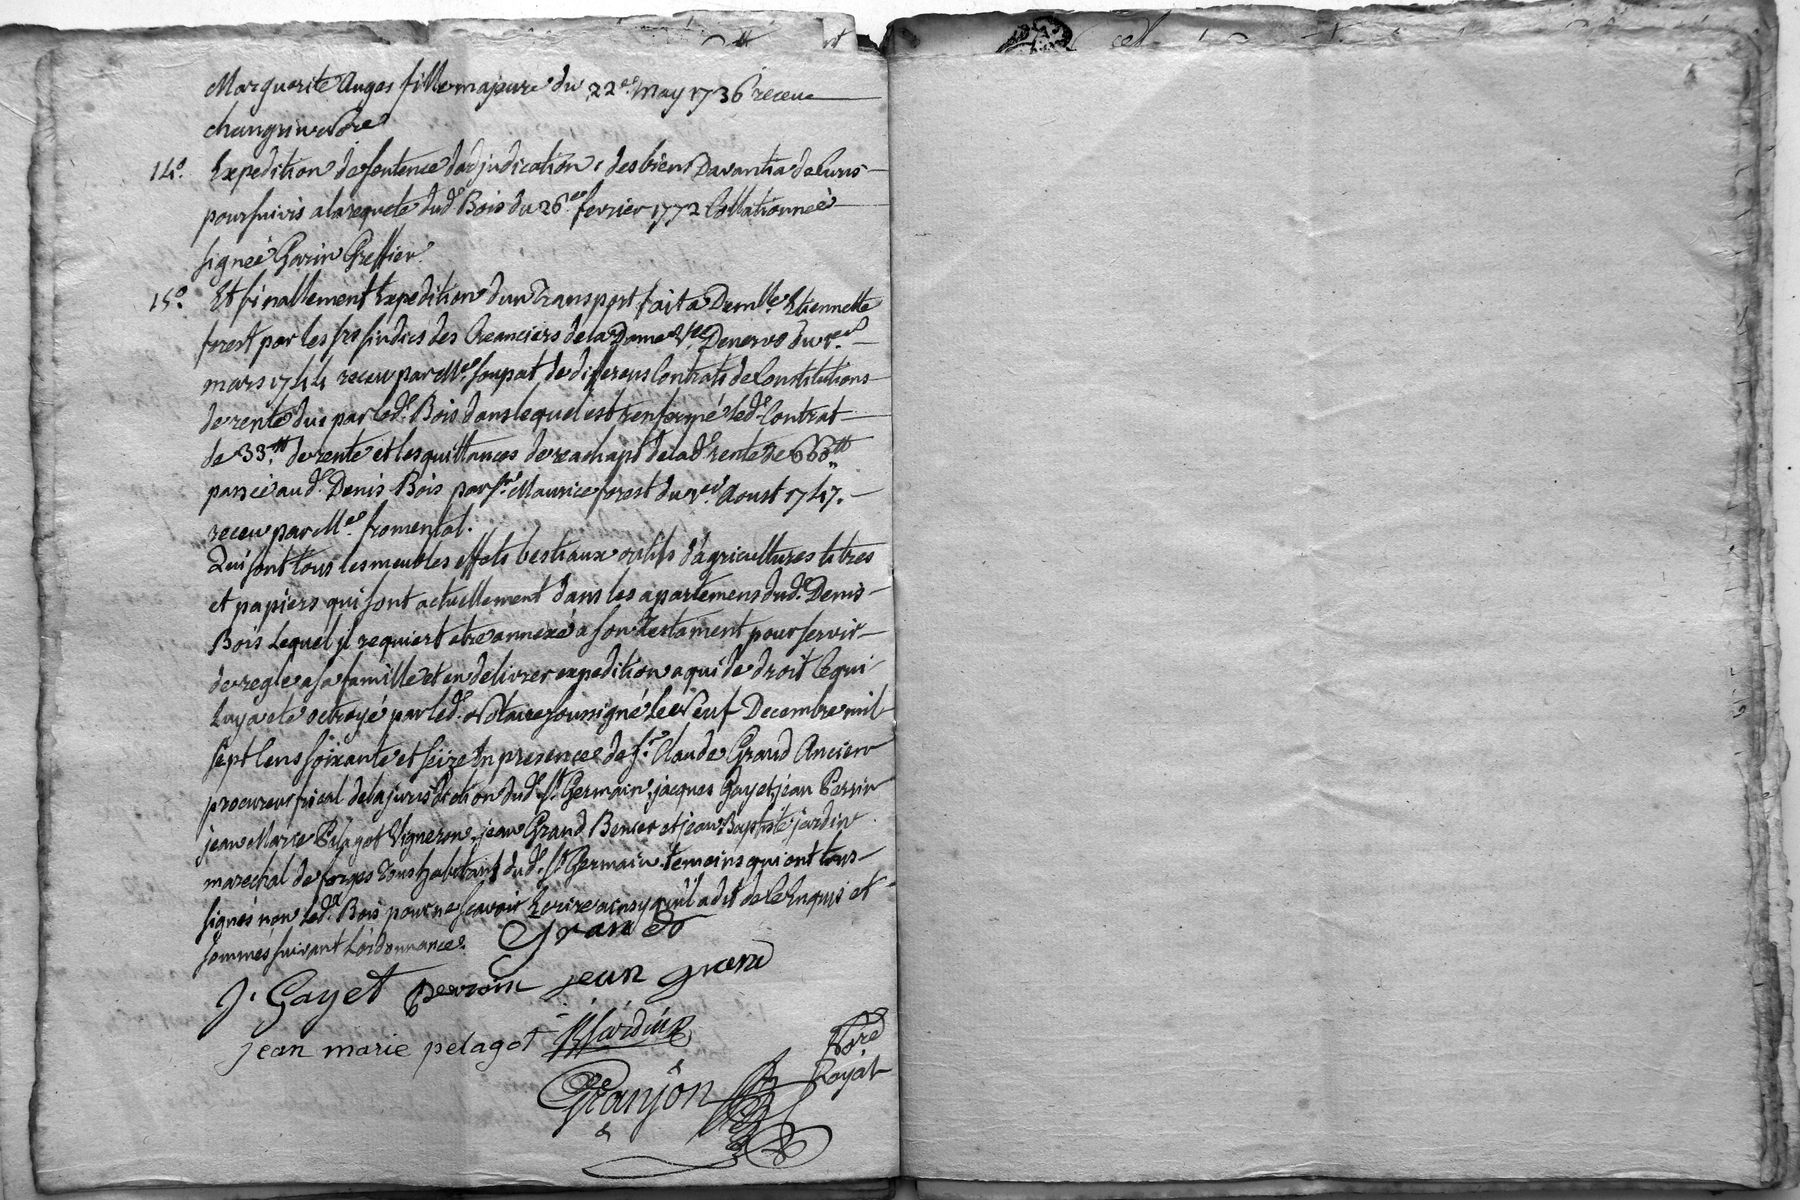 Marguerite Auges fille majeure du 22e. May 1736 receu
changrin Nore
14°. Expedition de sentence dadjudication des bien Davantia de Curis
poursuivis a la requete dud. Bois du 26e. fevrier 1772 Collationneé
signeé Garin Greffier.
15°. Et finallement Expedition dun Transport fait a Demlle. Etiennette
forest par les srs sindics des Creanciers de la Dame Ve. Denervo du
mars 1744 receu par Me. soupat de differens Contrats de Constitutions
de rente dus par led. Bois dans lequel est renfermé led. Contrat
de 33.tt de rente et les quittances de reachapt de lad. rente de 660tt
pasneé aud. Denis Bois par sr. Maurice forest du Aoust 1747.
receu par Me. fromental.
Qui sont tous les meubles effets bestiaux outils d'agricultures titres
et papiers qui sont actuellement dans les apartemens dud. Denis
Bois Lequel jl requiert etre annexé a son Testament pour servir
de regle a sa famille et en delivrer expedition a qui de droit Ce qui
Luy a eté octroyé par led. Notaire soussigné Le Neuf Decembre mil
sept Cens soixante et seize En presence de sr. Claude Grand Ancien
procureur fiscal de la jurisdiction dud. St. Germain, jacques Gayet, jean Perrin
jean Marie Pelagot Vigneron, jean Grand Benier et jean Baptiste jardin
marechal de forges Tous habitant dud. St. Germain. temoins qui ont tous
signés non led. Bois pour ne scavoir Ecrire ainsy quil a dit de Ce Enquis et
sommés suivant Lordonnance. Grand
J. Gayet perrin jean grand
jean marie pelagot B Jardin
Granjon Nore
Royal